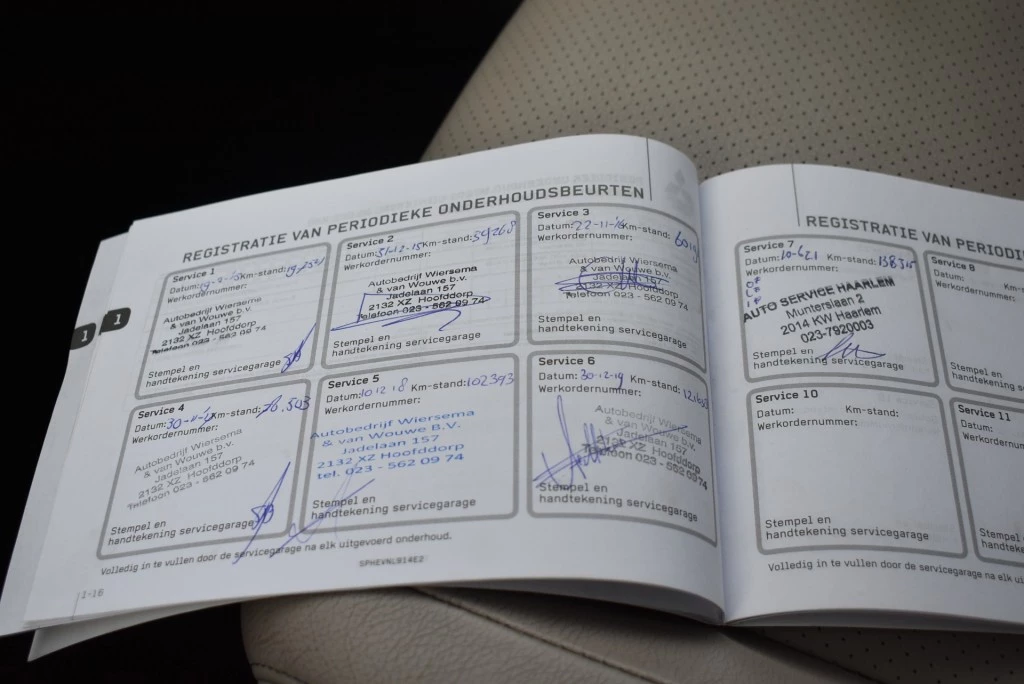 REGISTRATIE VAN PERIODIEKE ONDERHOUDSBEURTEN
Service 1
Datum: Km-stand:
Werkordernummer:
Autobedrijf Wiersema
& van Wouwe b.v.
Jadelaan 157
2132 XZ Hoofddorp
Telefoon 023 - 562 09 74
Stempel en
handtekening servicegarage
Service 2
Datum: 31-12-15 Km-stand: 59268
Werkordernummer:
Autobedrijf Wiersema
& van Wouwe b.v.
Jadelaan 157
2132 XZ Hoofddorp
Telefoon 023 - 562 09 74
Stempel en
handtekening servicegarage
Service 3
Datum: 22-11-16 Km-stand:
Werkordernummer:
Autobedrijf Wiersema
& van Wouwe b.v.
Jadelaan 157
2132 XZ Hoofddorp
Telefoon 023 - 562 09 74
Stempel en
handtekening servicegarage
Service 4
Datum: 30-11-17 Km-stand: 76.503
Werkordernummer:
Autobedrijf Wiersema
& van Wouwe b.v.
Jadelaan 157
2132 XZ Hoofddorp
Telefoon 023 - 562 09 74
Stempel en
handtekening servicegarage
Service 5
Datum: 10 12 18 Km-stand: 102393
Werkordernummer:
Autobedrijf Wiersema
& van Wouwe B.V.
Jadelaan 157
2132 XZ Hoofddorp
tel. 023 - 562 09 74
Stempel en
handtekening servicegarage
Service 6
Datum: 30-12-19 Km-stand:
Werkordernummer:
Autobedrijf Wiersema
& van Wouwe b.v.
Jadelaan 157
2132 XZ Hoofddorp
Telefoon 023 - 562 09 74
Stempel en
handtekening servicegarage
Volledig in te vullen door de servicegarage na elk uitgevoerd onderhoud.
SPHEVNL914E2
1-16
1
1
REGISTRATIE VAN PERIODI
Service 7
Datum: 10-6-21 Km-stand:
Werkordernummer:
AUTO SERVICE HAARLEM
Munterslaan 2
2014 KW Haarlem
023-7920003
Stempel en
handtekening servicegarage
Service 8
Datum:
Werkordernum
Stempel en
handtekening se
Service 10
Datum: Km-stand:
Werkordernummer:
Stempel en
handtekening servicegarage
Service 11
Datum:
Werkordernu
Stempel e
handteke
Volledig in te vullen door de servicegarage na elk ui